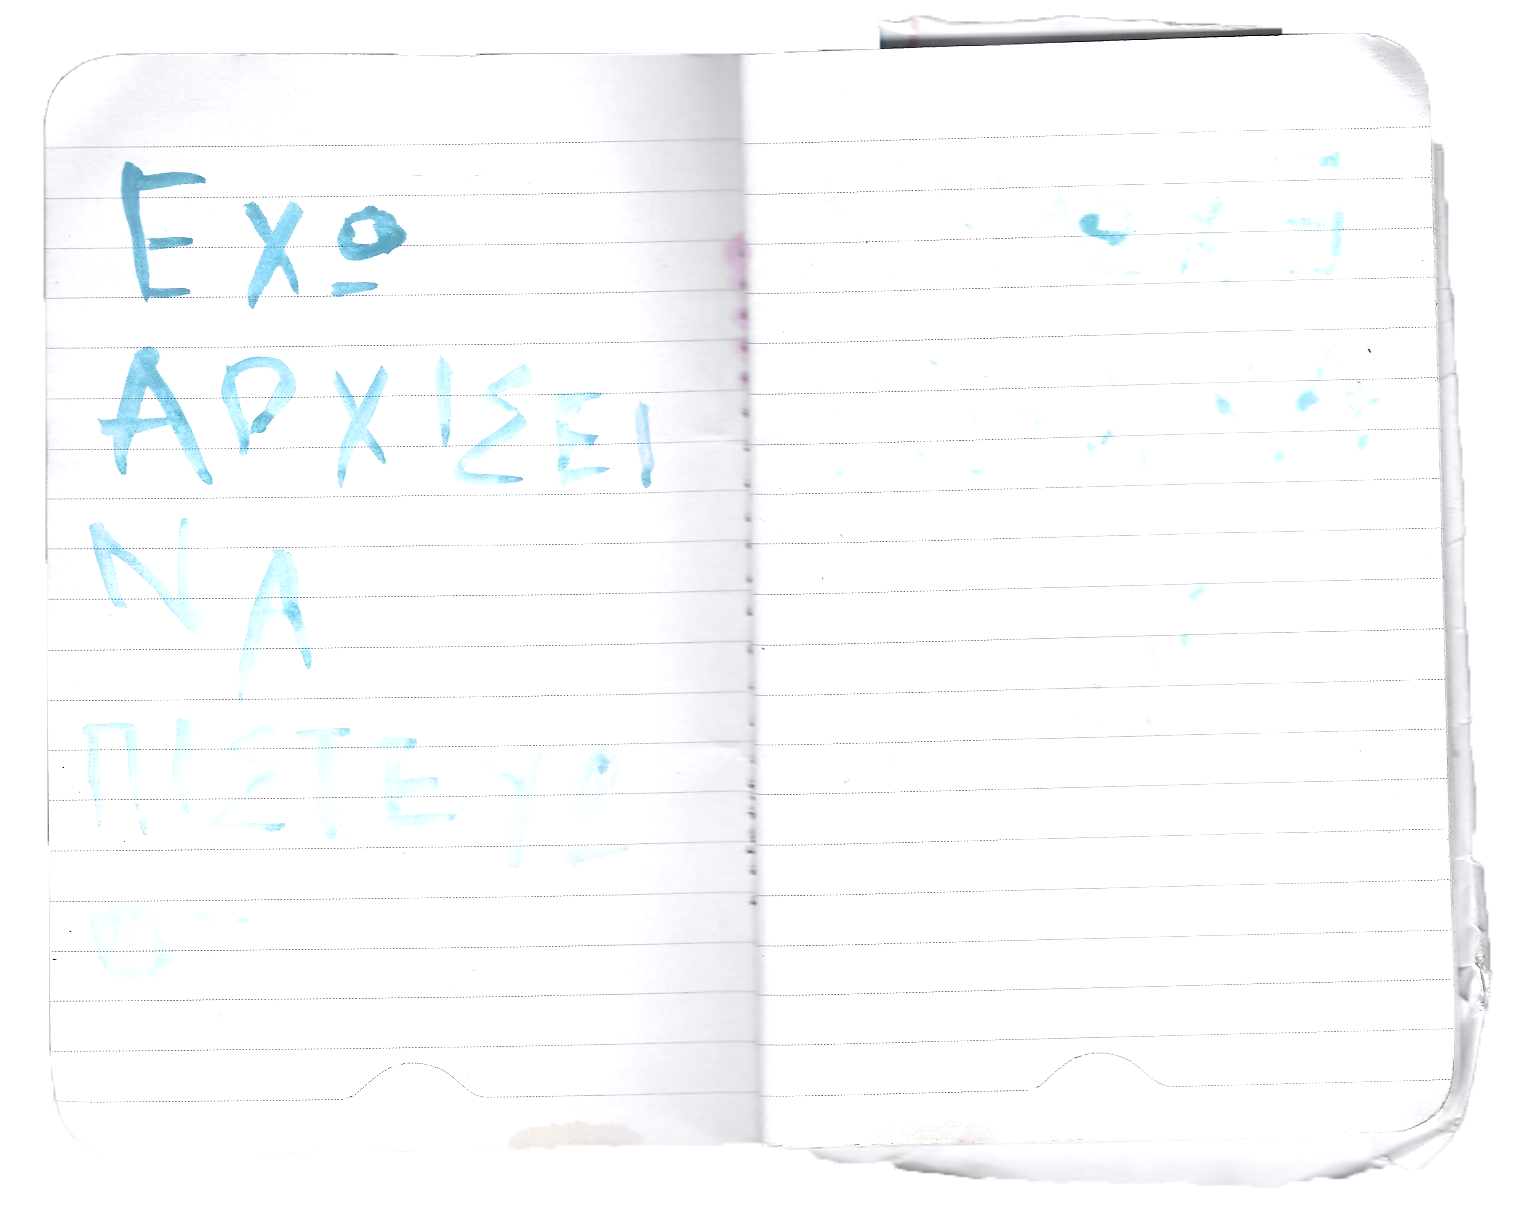 ΕΧΩ
ΑΡΧΙΣΕΙ
ΝΑ
ΠΙΣΤΕΥΩ